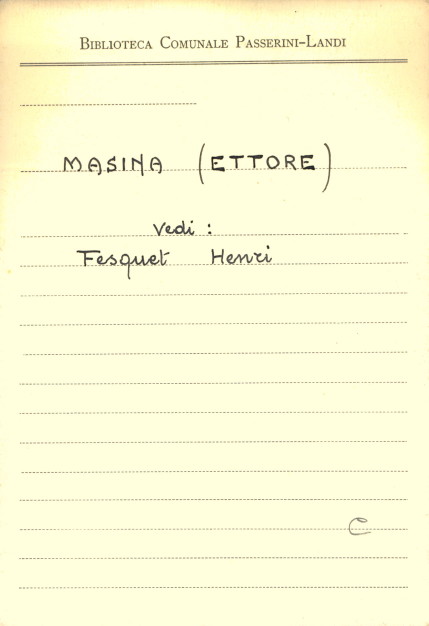 BIBLIOTECA COMUNALE PASSERINI-LANDI
MASINA (ETTORE)
Vedi :
Fesquet Henri
C